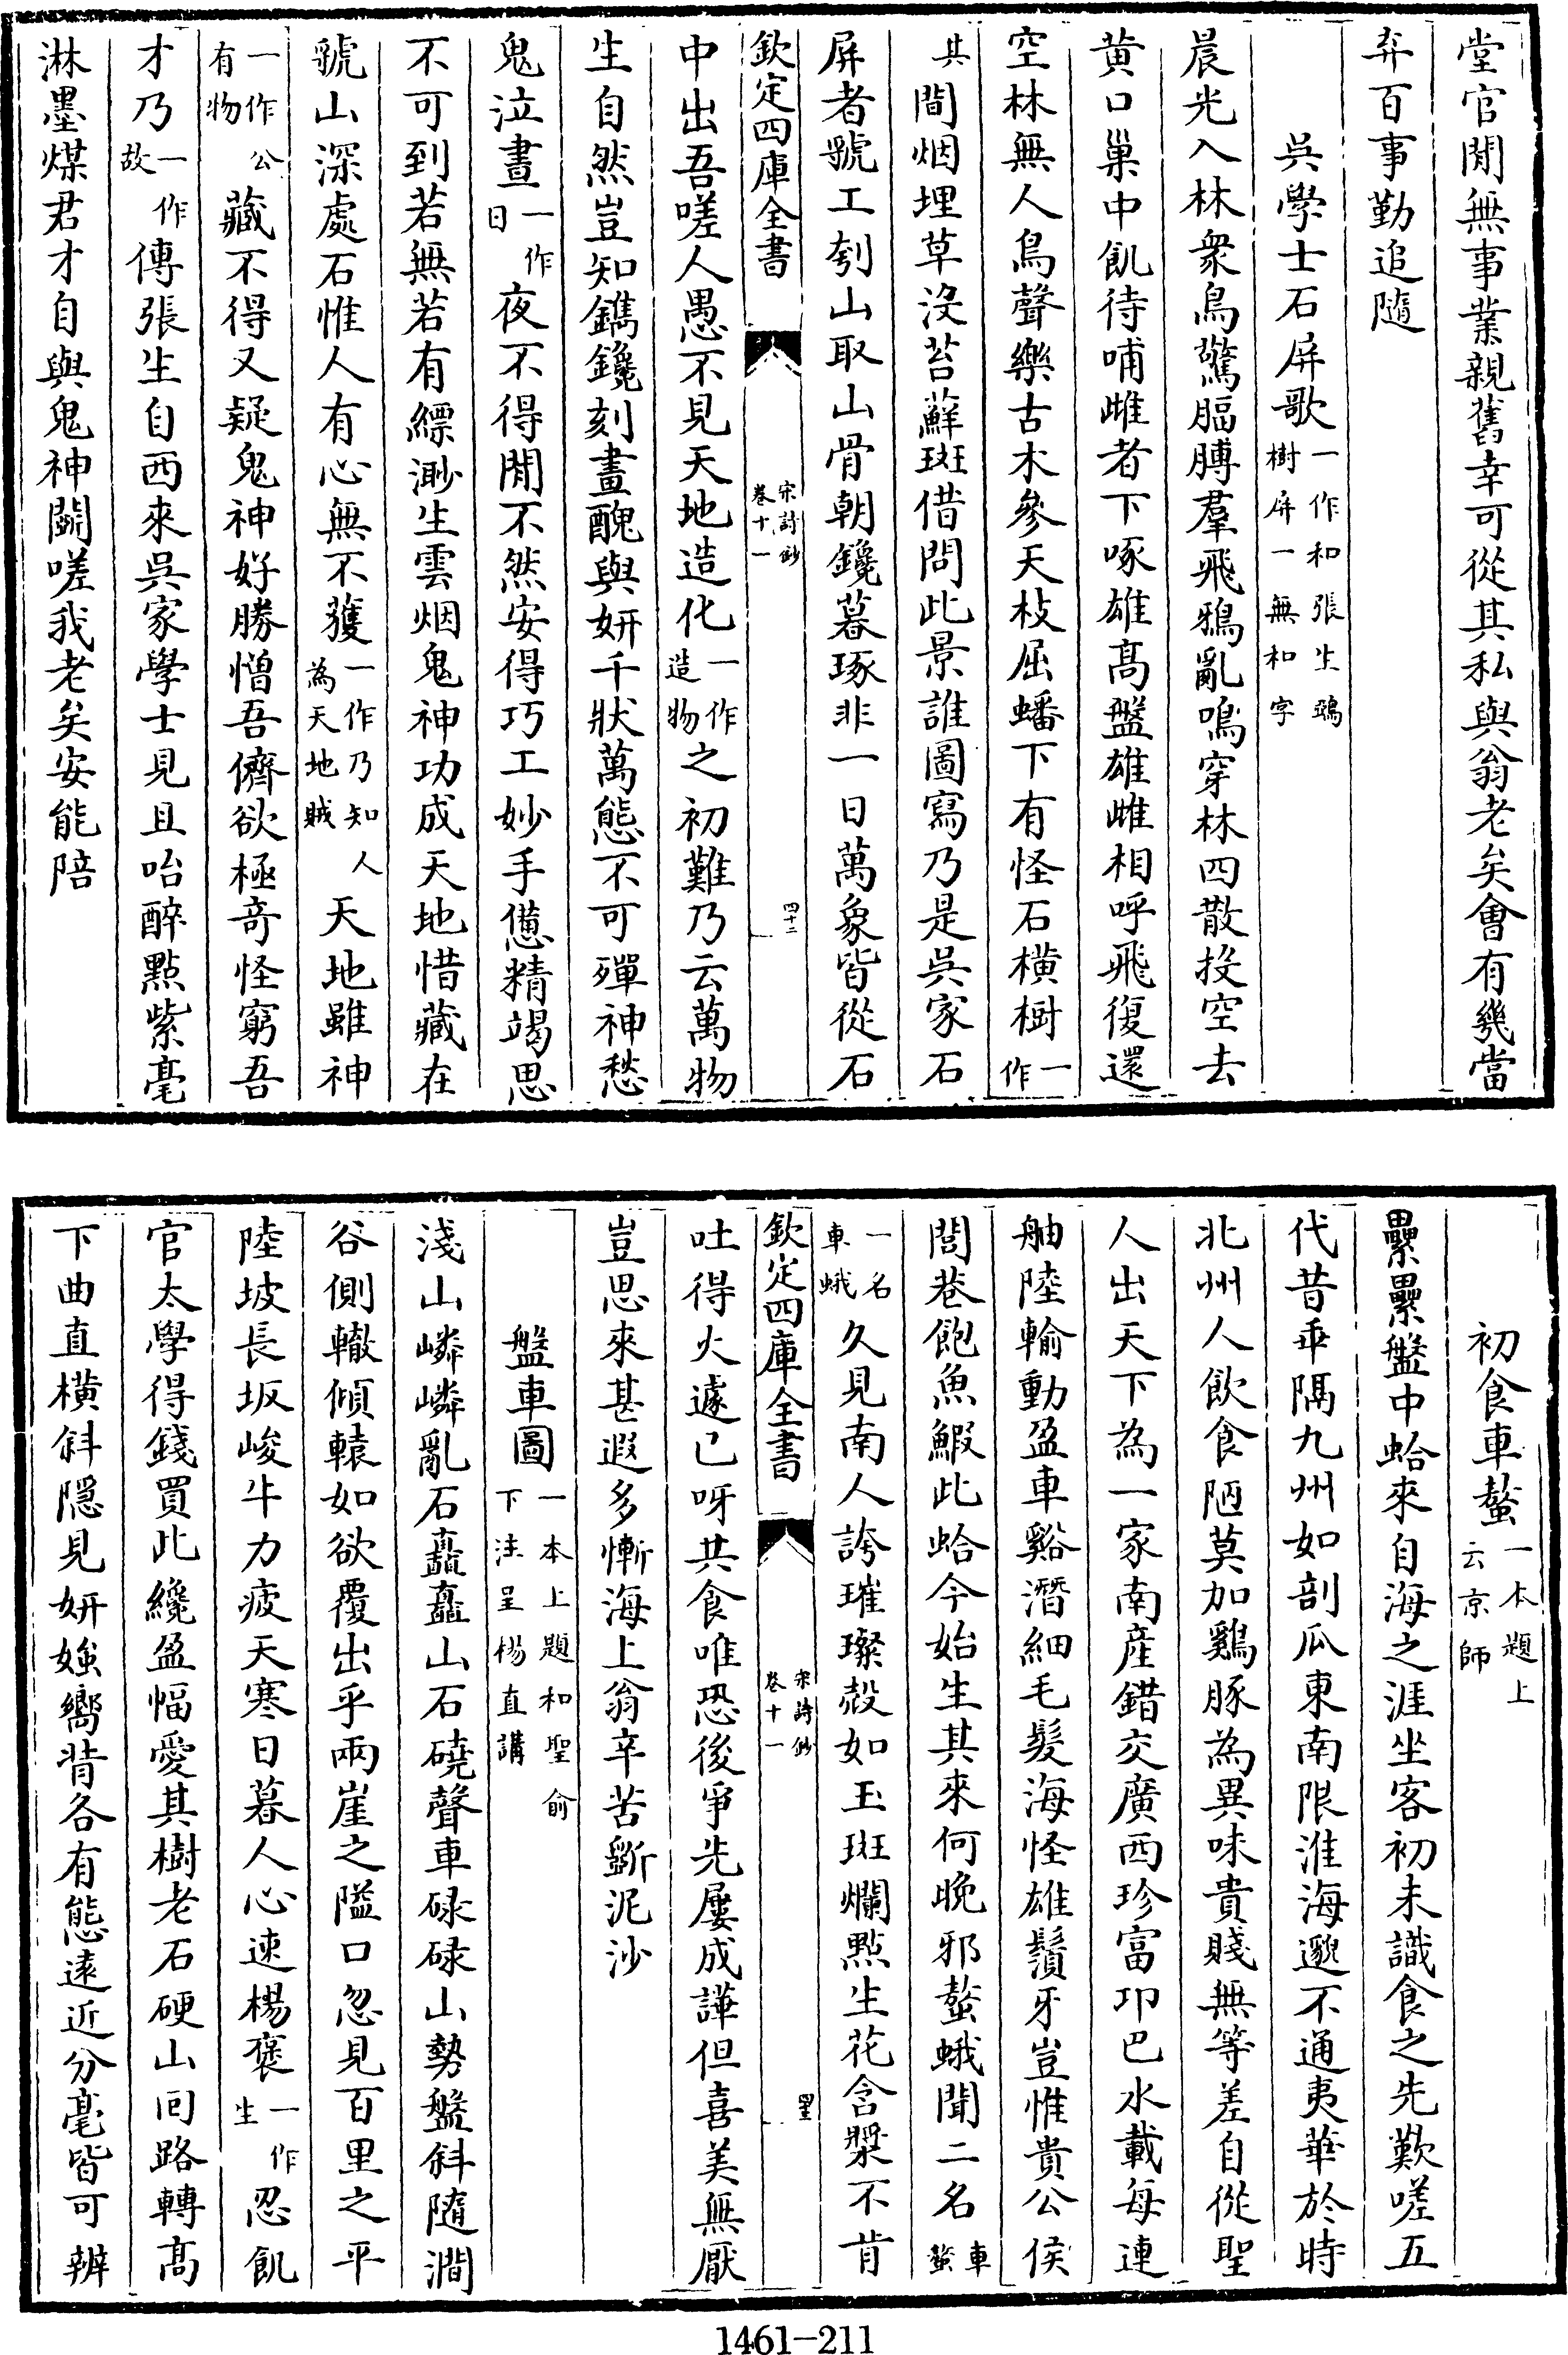 堂官閒無事業親舊幸可從其私與翁老矣會有幾當
弃百事勤追隨
吳學士石屏歌一作和張生鵶樹屏一無和字
晨光入林衆鳥驚腷膊羣飛鴉亂鳴穿林四散投空去
黄口巢中飢待哺雌者下啄雄髙盤雄雌相呼飛復還
空林無人鳥聲樂古木參天枝屈蟠下有怪石橫樹一作
其間烟埋草没苔蘚斑借問此景誰圖寫乃是吳家石
屏者虢工刳山取山骨朝鑱暮琢非一日萬象皆從石
欽定四庫全書
宋詩鈔
卷十一
四十二
中出吾嗟人愚不見天地造化一作造物之初難乃云萬物
生自然豈知鐫鑱刻畫醜與妍千狀萬態不可殫神愁
鬼泣晝一作日夜不得閒不然安得巧工妙手憊精竭思
不可到若無若有縹渺生雲烟鬼神功成天地惜藏在
虢山深處石惟人有心無不獲一作乃知人為天地賊天地雖神
一作公有物藏不得又疑鬼神好勝憎吾儕欲極奇怪窮吾
才乃一作故傳張生自西來吳家學士見且咍醉點紫毫
淋墨煤君才自與鬼神鬬嗟我老矣安能陪
初食車螯一本題上云京師
纍纍盤中蛤來自海之涯坐客初未識食之先歎嗟五
代昔乖隔九州如剖瓜東南限淮海邈不通夷華於時
北州人飲食陋莫加鷄豚為異味貴賤無等差自從聖
人出天下為一家南産錯交廣西珍富卭巴水載每連
舳陸輸動盈車谿潛細毛髮海怪雄鬚牙豈惟貴公侯
閭巷飽魚鰕此蛤今始生其來何晚邪螯蛾聞二名車螯
一名車蛾久見南人誇璀璨殻如玉斑斕點生花含漿不肯
欽定四庫全書
宋詩鈔
卷十一
四三
吐得火遽已呀共食唯恐後爭先屢成譁但喜美無厭
豈思來甚遐多慚海上翁辛苦斸泥沙
盤車圖一本上題和聖俞下注呈楊直講
淺山嶙嶙亂石矗矗山石磽聲車碌碌山勢盤斜隨澗
谷側轍傾轅如欲覆出乎兩崖之隘口忽見百里之平
陸坡長坂峻牛力疲天寒日暮人心速楊褒一作生忍飢
官太學得錢買此纔盈幅愛其樹老石硬山囘路轉髙
下曲直橫斜隱見妍媸嚮背各有態遠近分毫皆可辨
1461-211